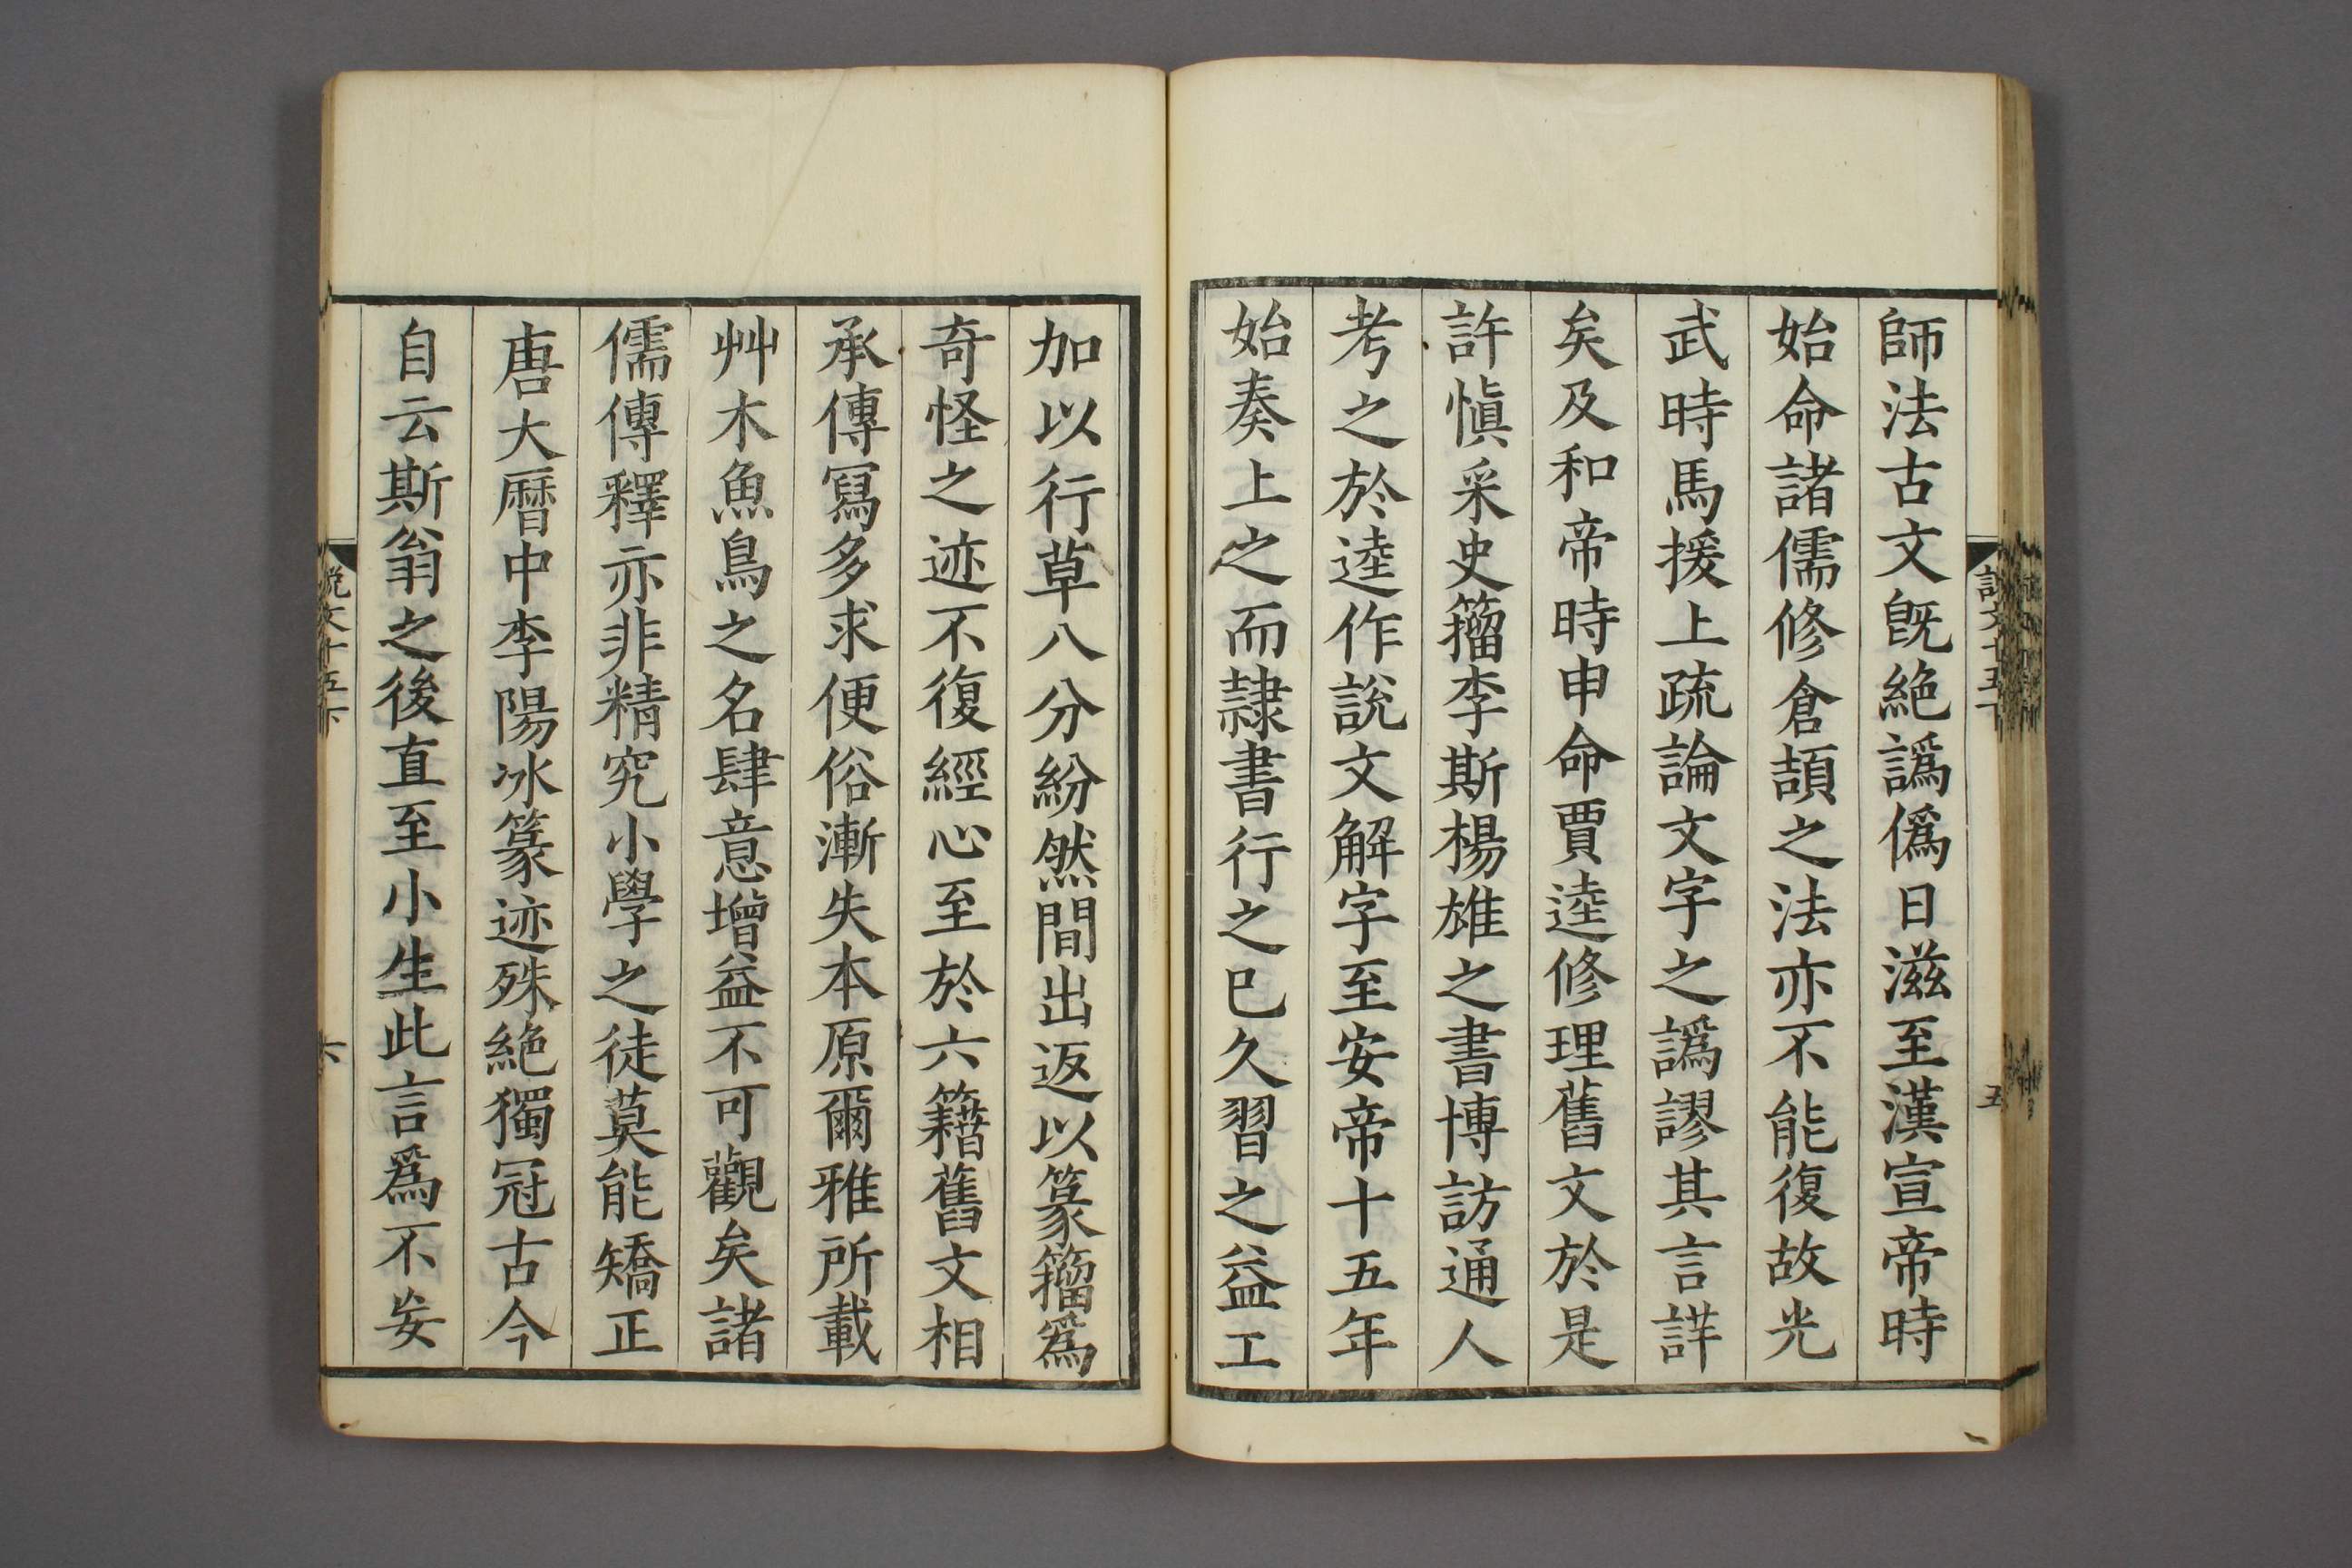 師法古文旣絶譌僞日滋至漢宣帝時
始命諸儒修倉頡之法亦不能復故光
武時馬援上疏論文字之譌謬其言詳
矣及和帝時申命賈逵修理舊文於是
許愼采史籀李斯楊雄之書博訪通人
考之於逵作說文解字至安帝十五年
始奏上之而隷書行之巳久習之益工
加以行草八分紛然間出返以篆籀爲
奇怪之迹不復經心至於六籍舊文相
承傳寫多求便俗漸失本原爾雅所載
艸木魚鳥之名肆意增益不可觀矣諸
儒傳釋亦非精究小學之徒莫能矯正
唐大曆中李陽冰篆迹殊絶獨冠古今
自云斯翁之後直至小生此言爲不妄
説文十五下
六